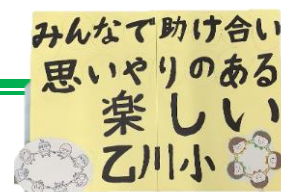 みんなで助け合い
思いやりのある
楽しい
乙川小